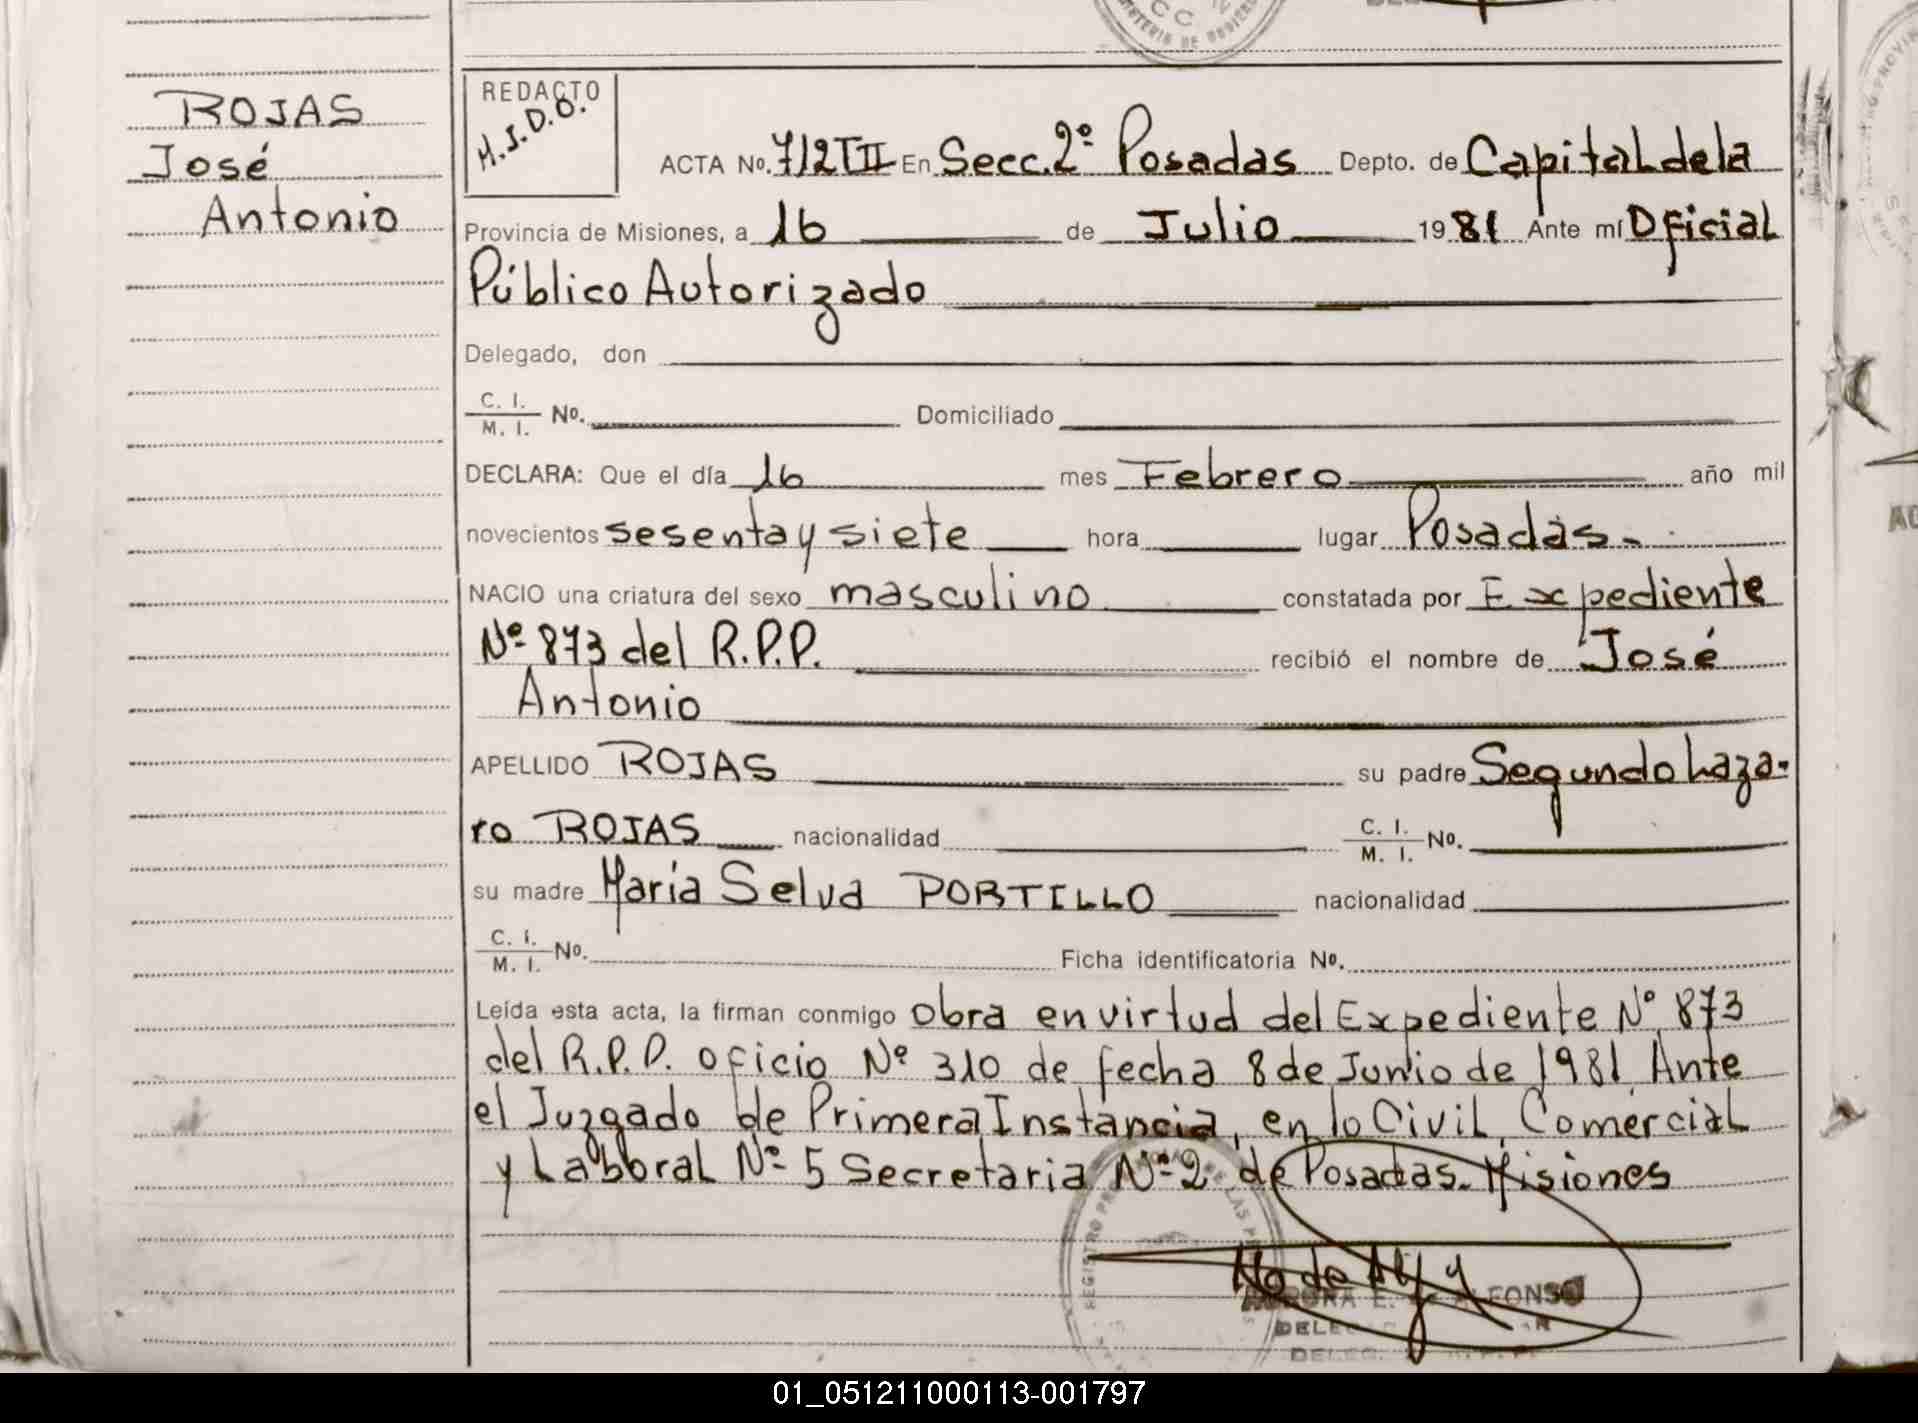 ROJAS
José
Antonio
REDACTO
M.J.D.O.
ACTA No. 712TII En Secc. 2º Posadas Depto. de Capital de la
Provincia de Misiones, a 16 de Julio 1981 Ante mí Oficial
Público Autorizado
Delegado, don
C. I.
M. I. No. Domiciliado
DECLARA: Que el día 16 mes Febrero año mil
novecientos sesenta y siete hora lugar Posadas.-
NACIO una criatura del sexo masculino constatada por Expediente
Nº 873 del R.P.P. recibió el nombre de José
Antonio
APELLIDO ROJAS su padre Segundo Laza-
ro ROJAS nacionalidad C. I.
M. I. No.
su madre María Selva PORTILLO nacionalidad
C. I.
M. I. No. Ficha identificatoria No.
Leída esta acta, la firman conmigo Obra en virtud del Expediente Nº 873
del R.P.P. oficio Nº 310 de fecha 8 de Junio de 1981 Ante
el Juzgado de Primera Instancia, en lo Civil, Comercial
y Laboral Nº 5 Secretaria Nº 2 de Posadas. Misiones
01_051211000113-001797